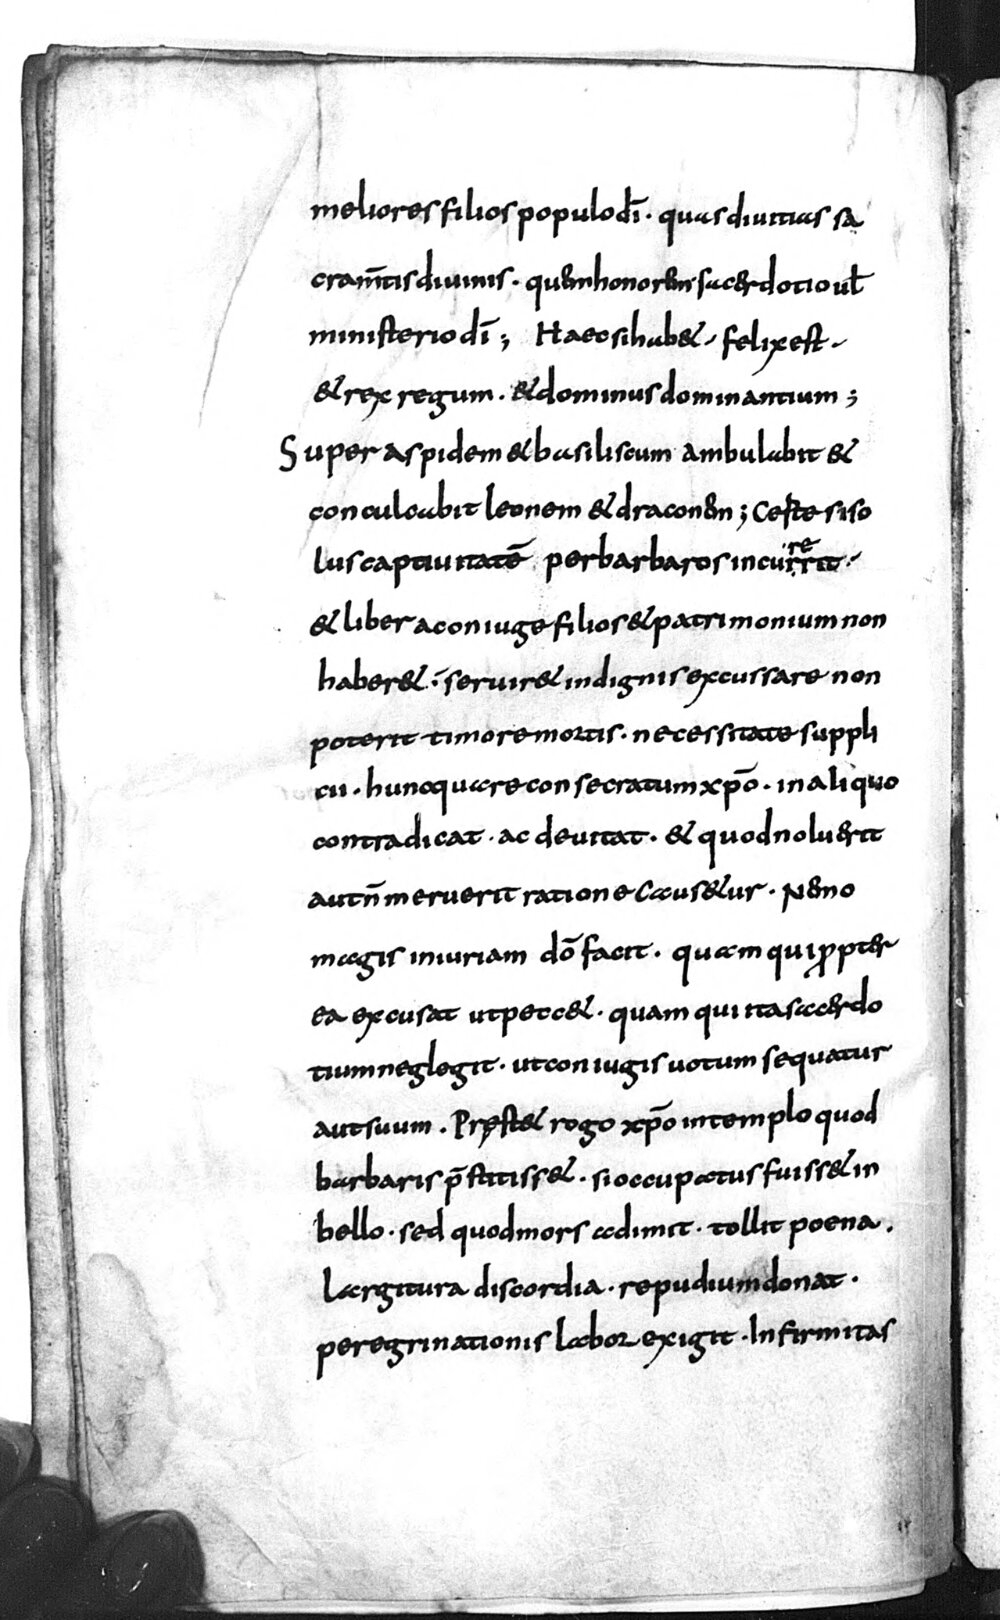 meliores filios populo dī · quas diuitias sa
cram̄tis diuinis · quem honorem sacerdotio ul̄
ministerio dī ; Haec si hab& · felix est ·
& rex regum · & dominus dominantium ;
Super aspidem & basiliscum ambulabit &
conculcabit leonem & draconem ; Certe si so
lus captiuitatē per barbaros incurrrit ·
re
& liber a coniuge filios & patrimonium non
haber& · seruir& indignis excussare non
poterit timore mortis · necessitate suppli
cii · hunc quare consecratum xp̄o · in aliquo
contradicat · ac deuitat · & quod noluerit
aut n̄ meruerit ratione caus&ur · Nemo
magis iniuriam dō facit · quam qui ꝓpter
ea excusat ut pecc& · quam qui ita sacerdo
tium neglegit · ut coniugis uotum sequatur
aut suum . Pręst& rogo xp̄o in templo quod
barbaris p̄stitiss& · si occupatus fuiss& in
bello · sed quod mors adimit · tollit poena .
Largitura discordia · repudium donat ·
peregrinationis labor exigit · Infirmitas